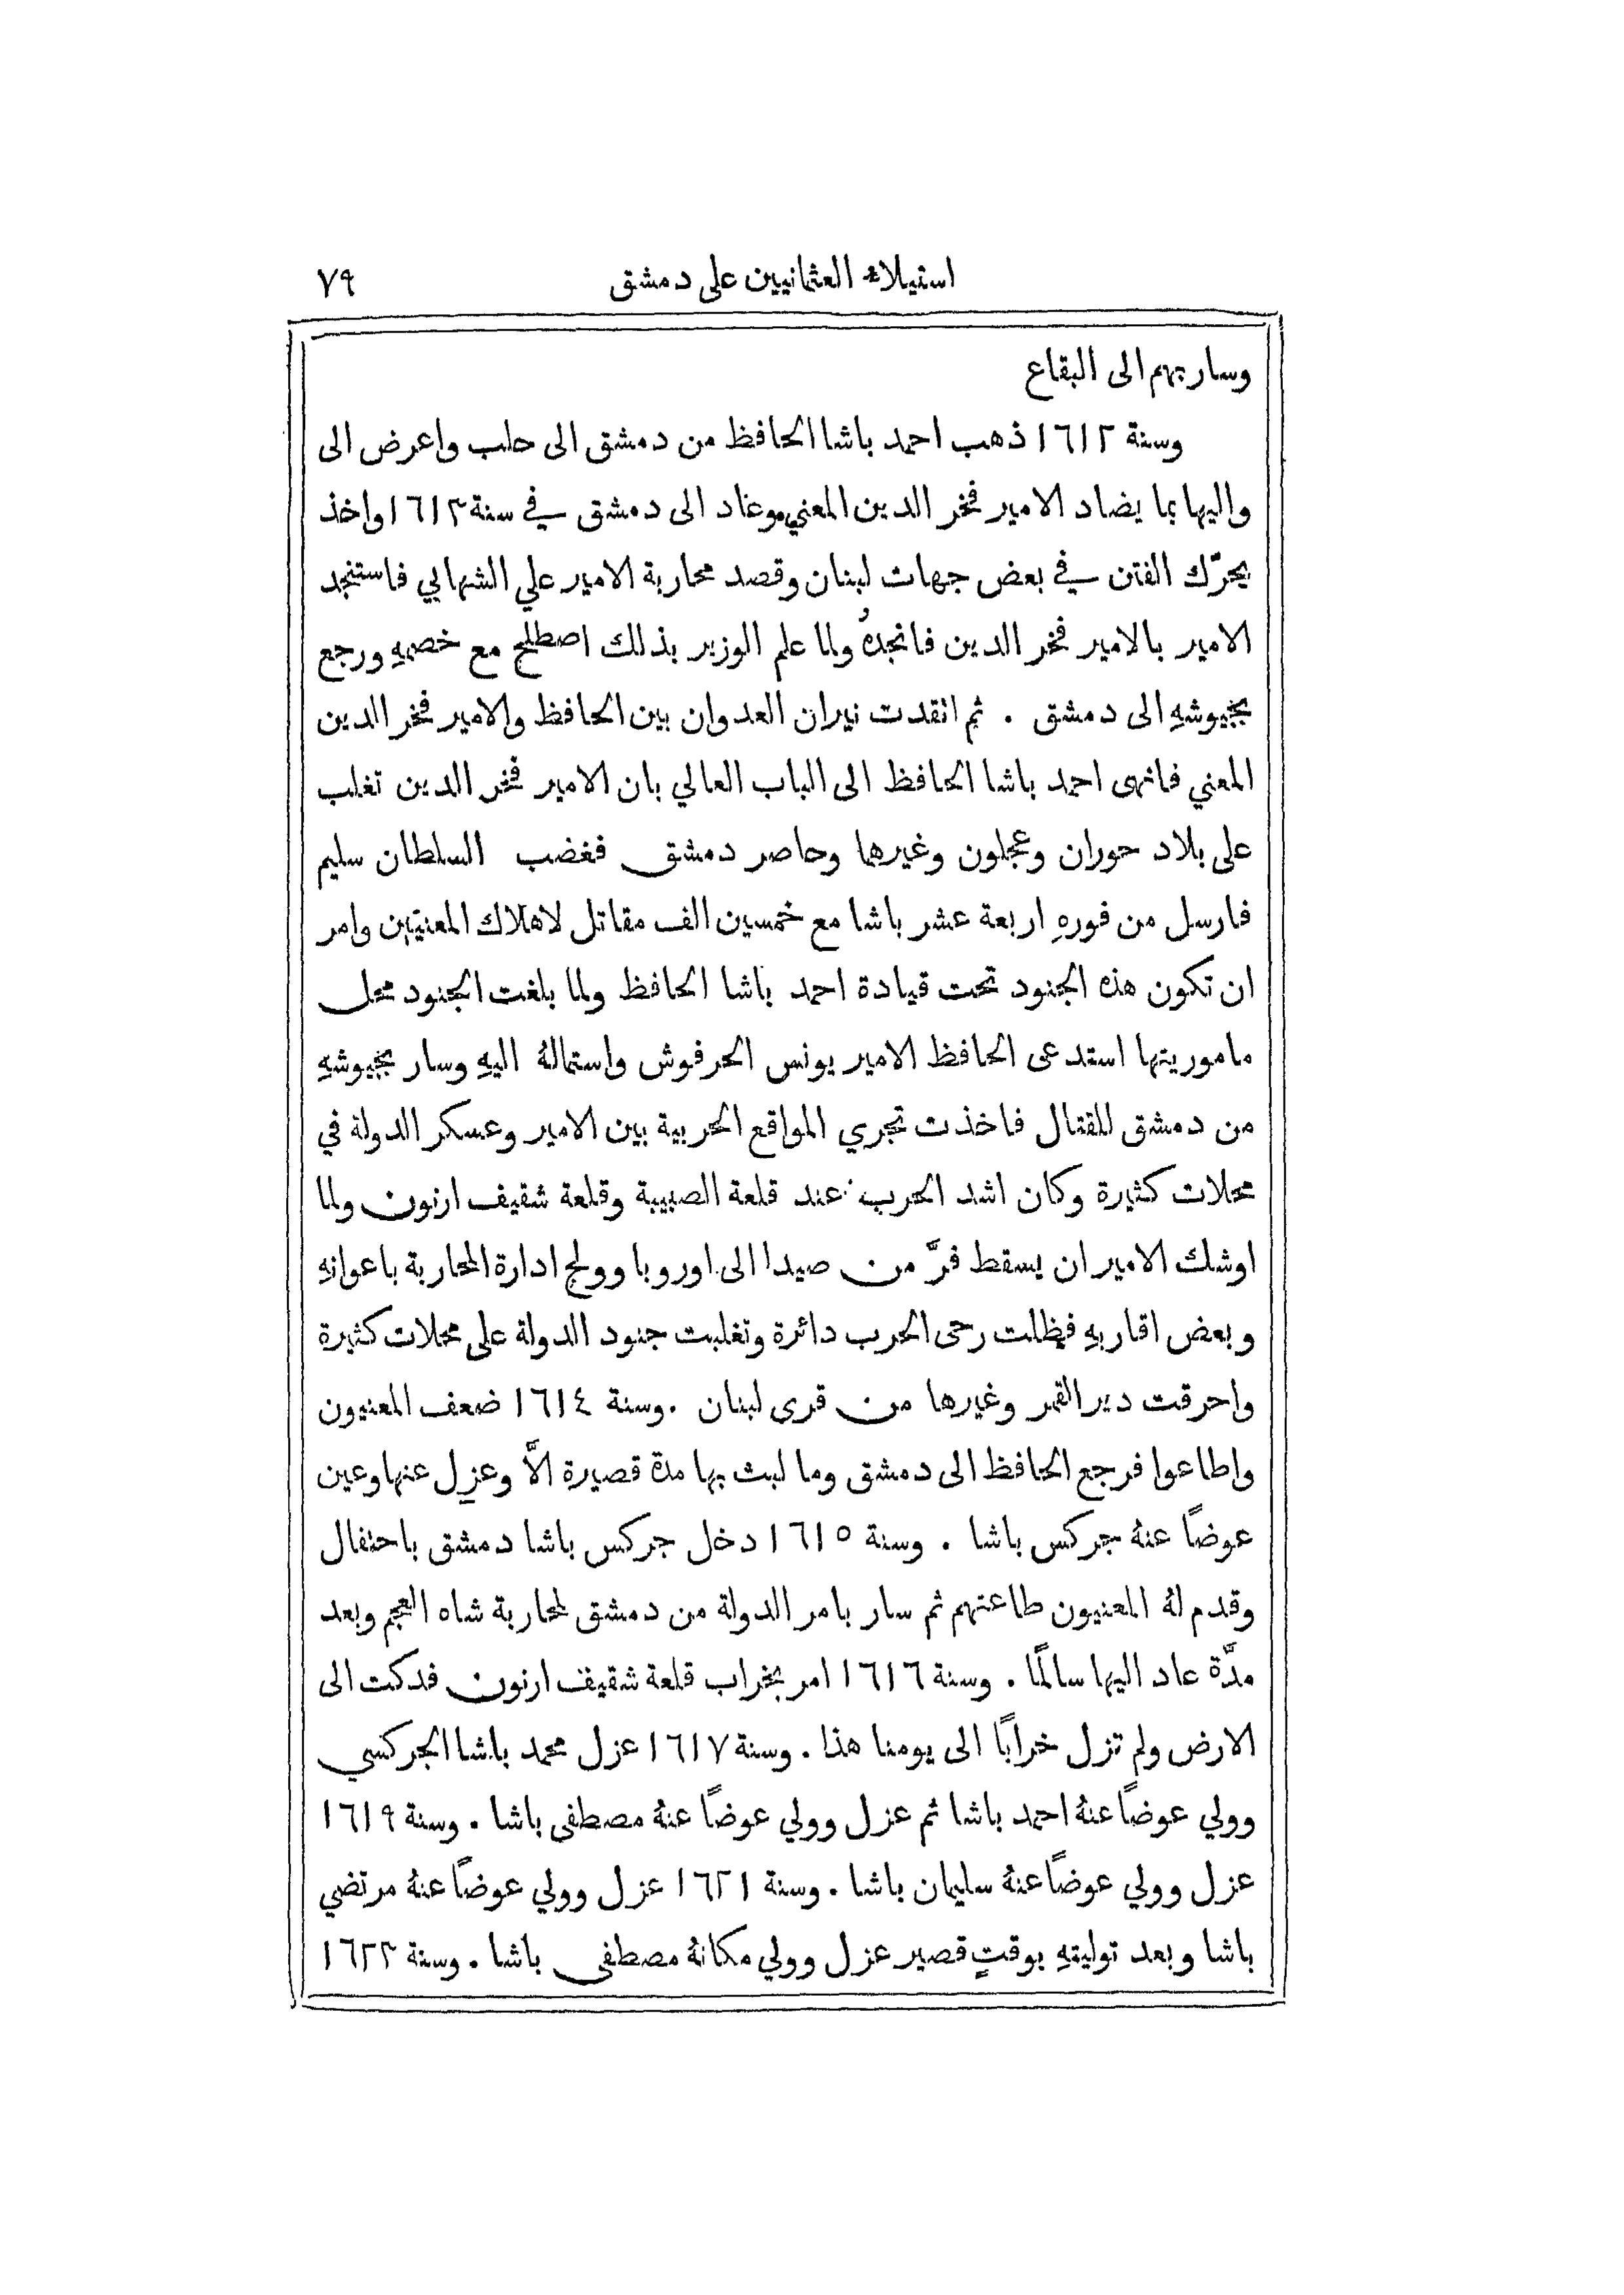 استيلاء العثمانيين على دمشق ٧٩
وسار بهم الى البقاع
وسنة ١٦١٢ ذهب احمد باشا الحافظ من دمشق الى حلب واعرض الى
واليها بما يضاد الامير فخر الدين المعني وعاد الى دمشق في سنة ١٦١٣ واخذ
يحرّك الفتن في بعض جهات لبنان وقصد محاربة الامير علي الشهابي فاستنجد
الامير بالامير فخر الدين فانجدهُ ولما علم الوزير بذلك اصطلح مع خصمهِ ورجع
بجيوشهِ الى دمشق . ثم اتقدت نيران العدوان بين الحافظ والامير فخر الدين
المعني فانهى احمد باشا الحافظ الى الباب العالي بان الامير فخر الدين تغلب
على بلاد حوران وعجلون وغيرها وحاصر دمشق فغضب السلطان سليم
فارسل من فورهِ اربعة عشر باشا مع خمسين الف مقاتل لاهلاك المعنيّين وامر
ان تكون هذه الجنود تحت قيادة احمد باشا الحافظ ولما بلغت الجنود محل
ماموريتها استدعى الحافظ الامير يونس الحرفوش واستمالهُ اليهِ وسار بجيوشهِ
من دمشق للقتال فاخذت تجري المواقع الحربية بين الامير وعسكر الدولة في
محلات كثيرة وكان اشد الحرب عند قلعة الصبيبة وقلعة شقيف ارنون ولما
اوشك الامير ان يسقط فرَّ من صيدا الى اوروبا وولج ادارة المحاربة باعوانهِ
وبعض اقاربهِ فظلت رحى الحرب دائرة وتغلبت جنود الدولة على محلات كثيرة
واحرقت دير القمر وغيرها من قرى لبنان . وسنة ١٦١٤ ضعف المعنيون
واطاعوا فرجع الحافظ الى دمشق وما لبث بها مدة قصيرة الاَّ وعزل عنها وعين
عوضًا عنهُ جركس باشا . وسنة ١٦١٥ دخل جركس باشا دمشق باحتفال
وقدم لهُ المعنيون طاعتهم ثم سار بامر الدولة من دمشق لمحاربة شاه العجم وبعد
مدَّة عاد اليها سالمًا . وسنة ١٦١٦ امر بخراب قلعة شقيف ارنون فدكت الى
الارض ولم تزل خرابًا الى يومنا هذا . وسنة ١٦١٧ عزل محمد باشا الجركسي
وولي عوضًا عنهُ احمد باشا ثم عزل وولي عوضًا عنهُ مصطفى باشا . وسنة ١٦١٩
عزل وولي عوضًا عنهُ سليمان باشا . وسنة ١٦٢١ عزل وولي عوضًا عنهُ مرتضي
باشا وبعد توليتهِ بوقتٍ قصير عزل وولي مكانهُ مصطفى باشا . وسنة ١٦٢٢